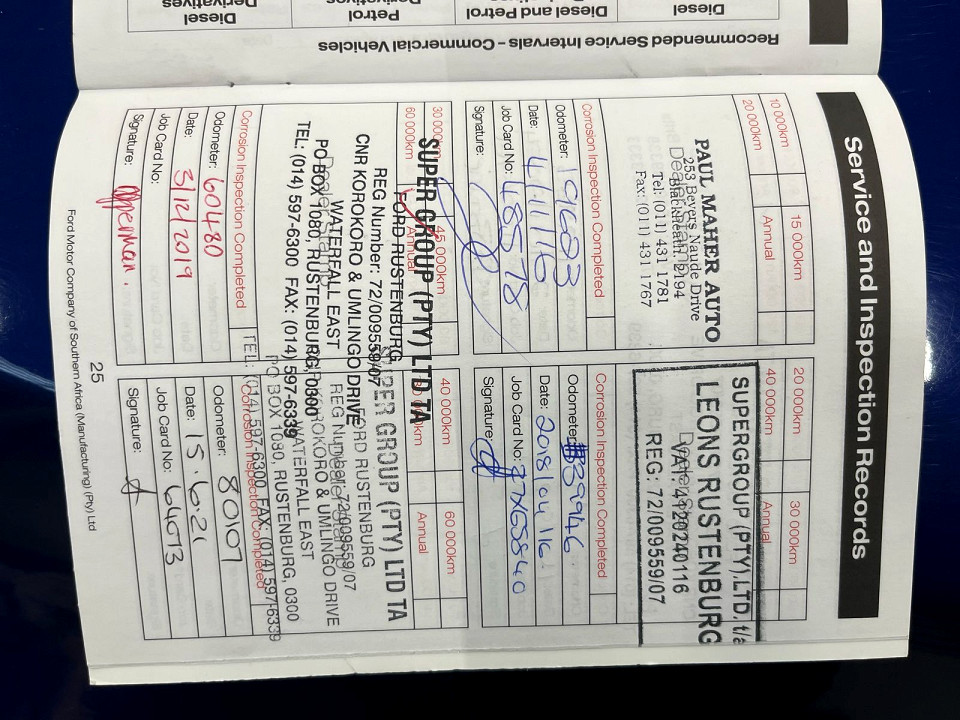 Recommended Service Intervals – Commercial Vehicles
Diesel
Diesel and Petrol
Petrol
Derivatives
Diesel
Derivatives
Service and Inspection Records
10 000km
15 000km
20 000km
Annual
PAUL MAHER AUTO
253 Beyers Naude Drive
Blackheath, 2194
Tel: (011) 431 1781
Fax: (011) 431 1767
Corrosion Inspection Completed
Odometer: 19683
Date: 4/11/16
Job Card No: 48578
Signature:
20 000km
30 000km
40 000km
Annual
SUPERGROUP (PTY) LTD. t/a
LEONS RUSTENBURG
VAT: 4320240116
REG: 72/009559/07
Corrosion Inspection Completed
Odometer: 39946
Date: 2018/04/16
Job Card No: 37XG5840
Signature:
30 000km
45 000km
60 000km
Annual
SUPER GROUP (PTY) LTD TA
FORD RUSTENBURG
REG Number: 72/009559/07
CNR KOROKORO & UMLINGO DRIVE
WATERFALL EAST
PO BOX 1080, RUSTENBURG, 0300
TEL: (014) 597-6300 FAX: (014) 597-6339
Corrosion Inspection Completed
Odometer: 60480
Date: 3/12/2019
Job Card No:
Signature: Opperman.
40 000km
60 000km
Annual
SUPER GROUP (PTY) LTD TA
FORD RUSTENBURG
REG Number: 72/009559/07
KOROKORO & UMLINGO DRIVE
WATERFALL EAST
PO BOX 1080, RUSTENBURG, 0300
TEL: (014) 597-6300 FAX: (014) 597-6339
Corrosion Inspection Completed
Odometer: 80107
Date: 15.6.21
Job Card No: 64073
Signature:
25
Ford Motor Company of Southern Africa (Manufacturing) (Pty) Ltd